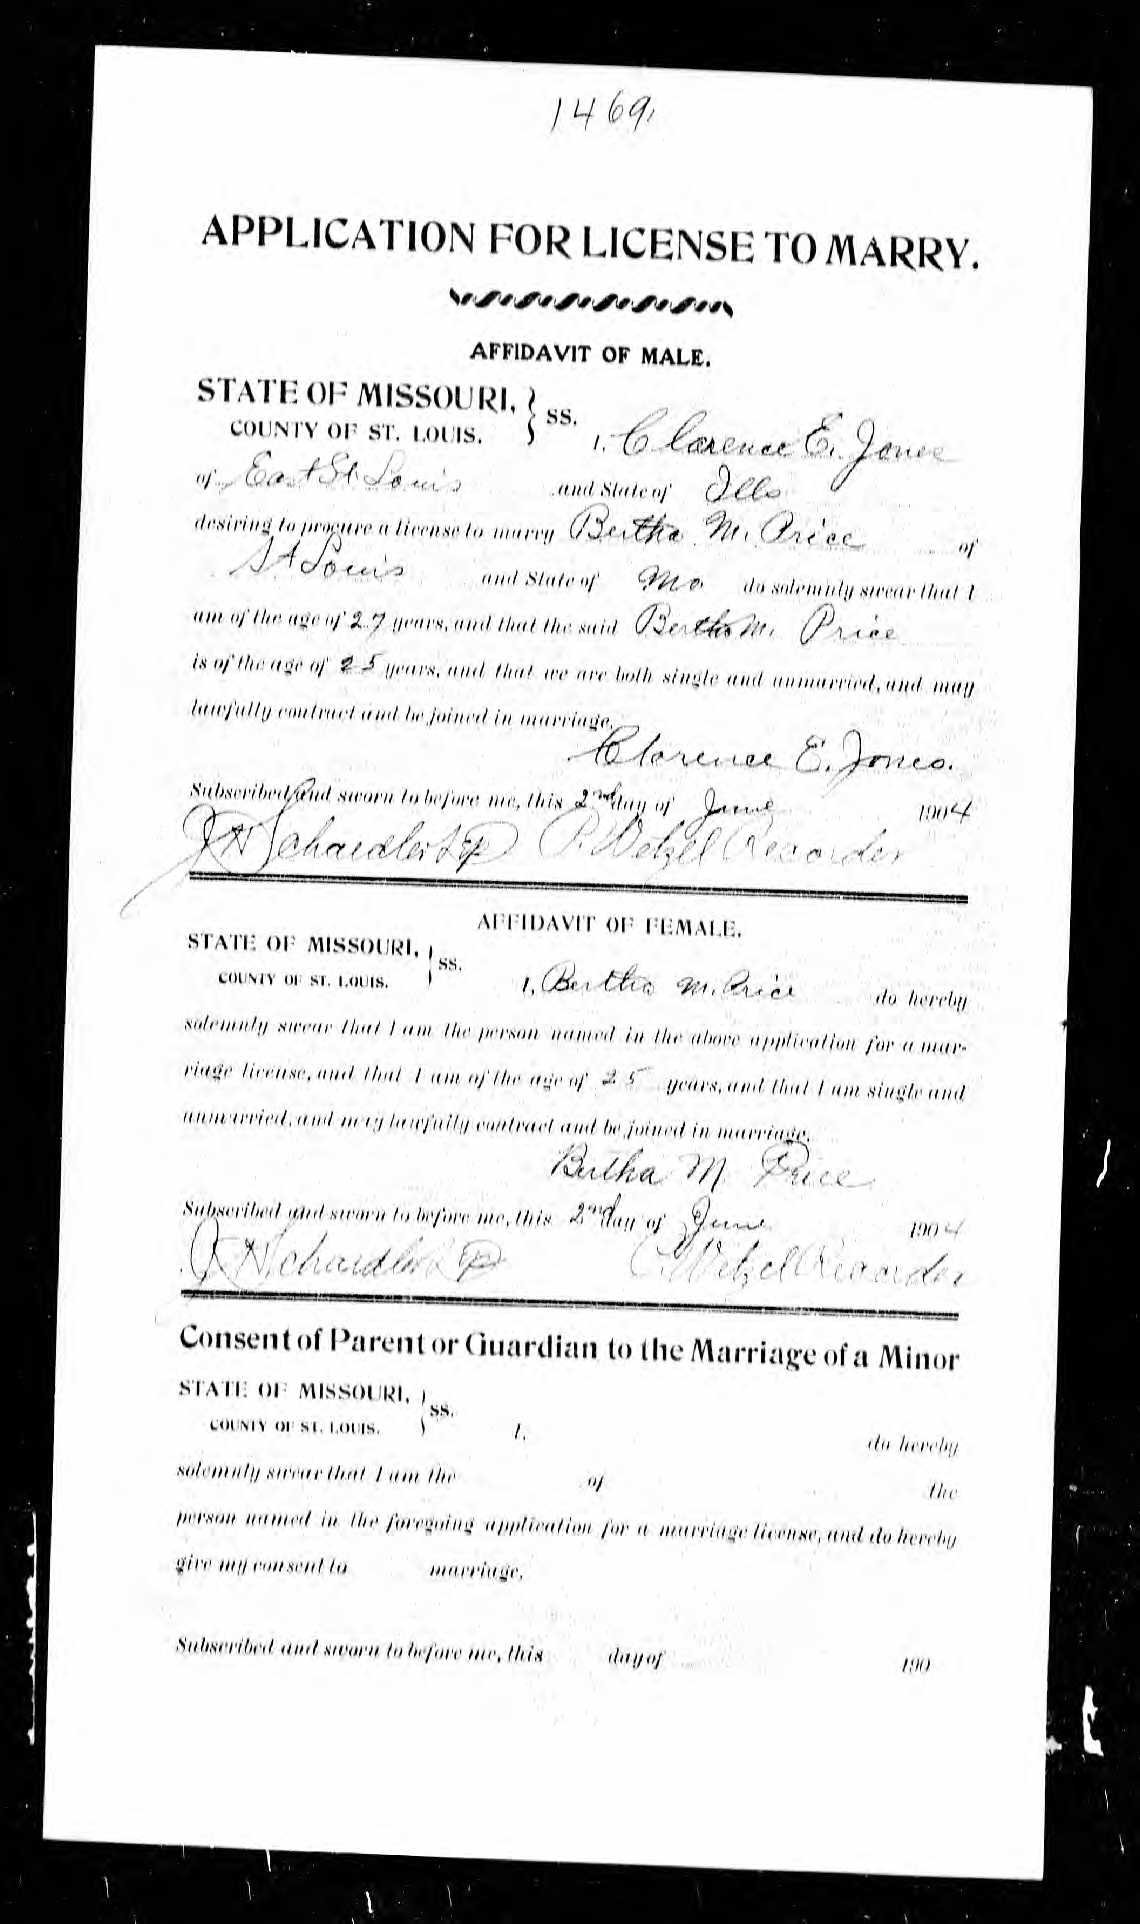 1469
APPLICATION FOR LICENSE TO MARRY.
AFFIDAVIT OF MALE.
STATE OF MISSOURI, } SS.
COUNTY OF ST. LOUIS.
I, Clarence E. Jones
of East St Louis and State of Ills
desiring to procure a license to marry Bertha M. Price of
St Louis and State of Mo do solemnly swear that I
am of the age of 27 years, and that the said Bertha M. Price
is of the age of 25 years, and that we are both single and unmarried, and may
lawfully contract and be joined in marriage.
Clarence E. Jones.
Subscribed and sworn to before me, this 2nd day of June 1904
P. Wetzel Recorder
AFFIDAVIT OF FEMALE.
STATE OF MISSOURI, } SS.
COUNTY OF ST. LOUIS.
I, Bertha M. Price do hereby
solemnly swear that I am the person named in the above application for a mar-
riage license, and that I am of the age of 25 years, and that I am single and
unmarried, and may lawfully contract and be joined in marriage.
Bertha M Price
Subscribed and sworn to before me, this 2nd day of June 1904
Wetzel Recorder
Consent of Parent or Guardian to the Marriage of a Minor
STATE OF MISSOURI, } SS.
COUNTY OF ST. LOUIS.
I, do hereby
solemnly swear that I am the of the
person named in the foregoing application for a marriage license, and do hereby
give my consent to marriage.
Subscribed and sworn to before me, this day of 190